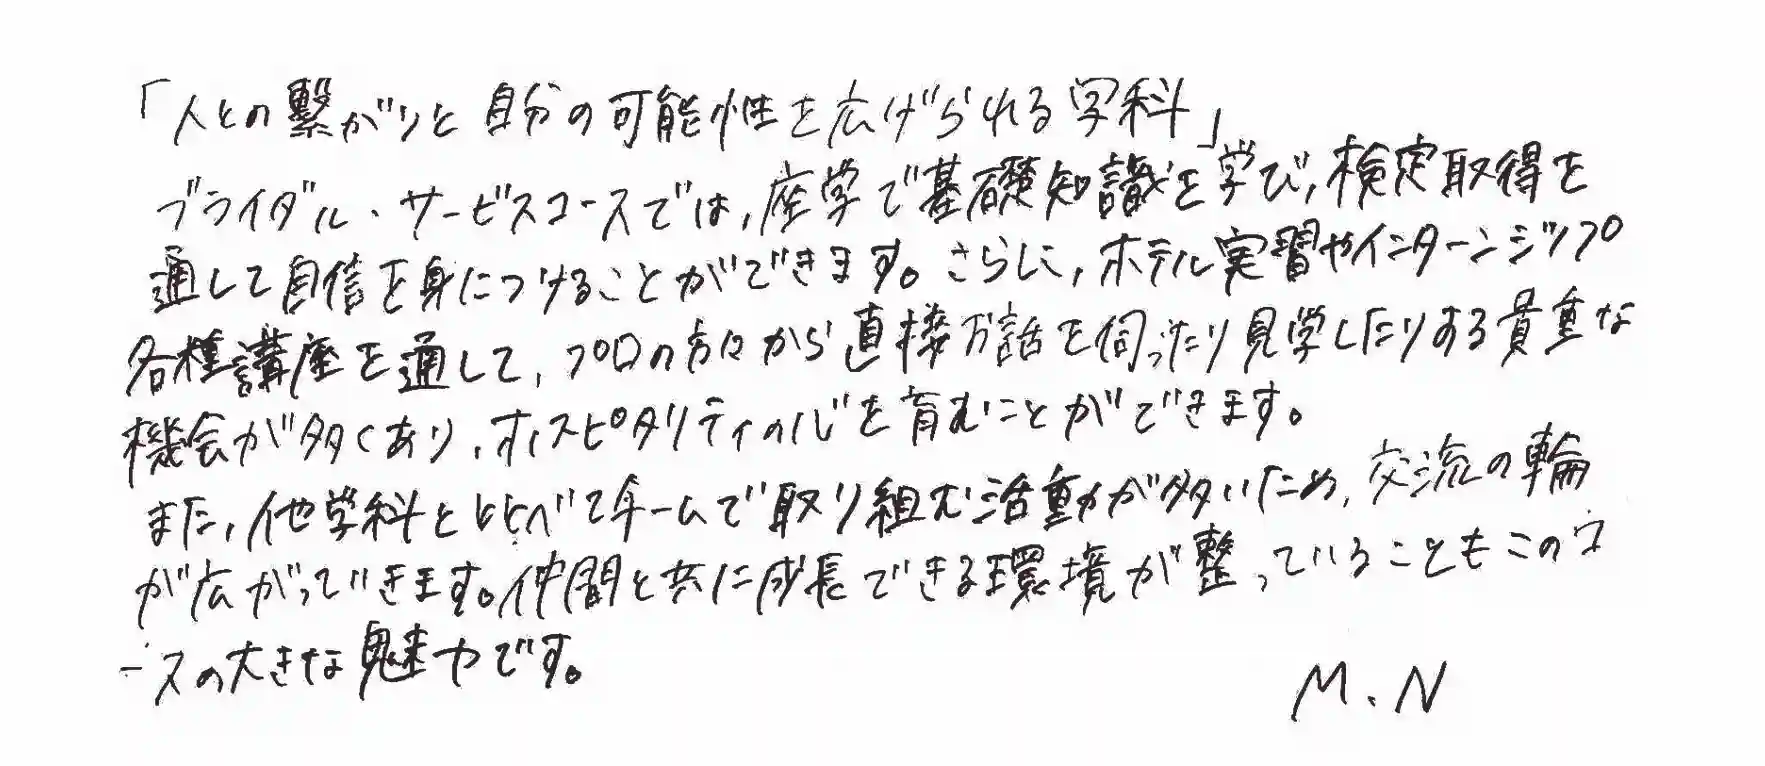 「人との繋がりと自分の可能性を広げられる学科」
ブライダル・サービスコースでは、座学で基礎知識を学び、検定取得を
通して自信を身につけることができます。さらに、ホテル実習やインターンシップ
各種講座を通して、プロの方々から直接お話を伺ったり見学したりする貴重な
機会が多くあり、ホスピタリティの心を育むことができます。
また、他学科と比べてチームで取り組む活動が多いため、交流の輪
が広がっていきます。仲間と共に成長できる環境が整っていることもこのコ
ースの大きな魅力です。
M.N